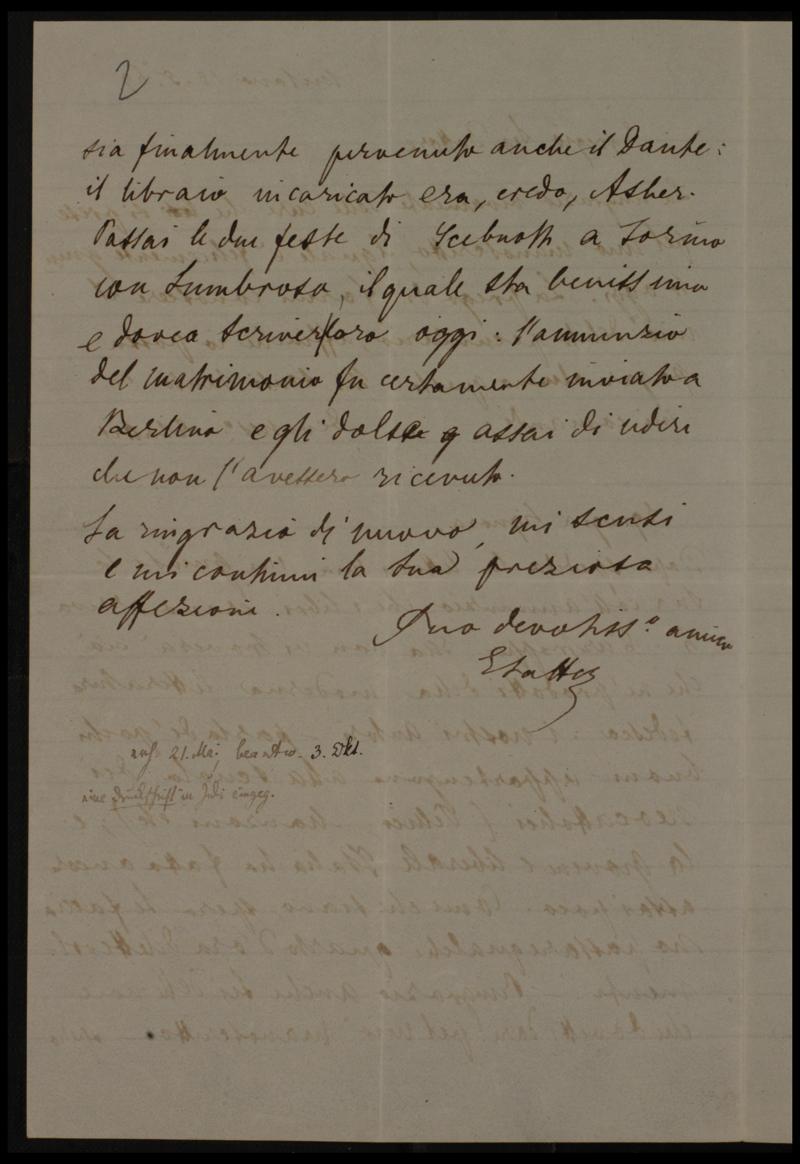 2
sia finalmente pervenuto anche il Dante:
il libraio incaricato era, credo, Asher.
Passai le due feste di Scebuoth a Torino
con Lumbroso, il quale sta benissimo
e dovea scriver loro oggi: l'annunzio
del matrimonio fu certamente inviato a
Berlino e gli dolse assai di udire
che non l'avessero ricevuto.
La ringrazio di nuovo, mi scusi
e mi continui la sua preziosa
affezione.
Suo devotiss.o amico
ELattes
21. Mai, beantw. 3. Okt.
eine Druckschrift in Juli eingeg.